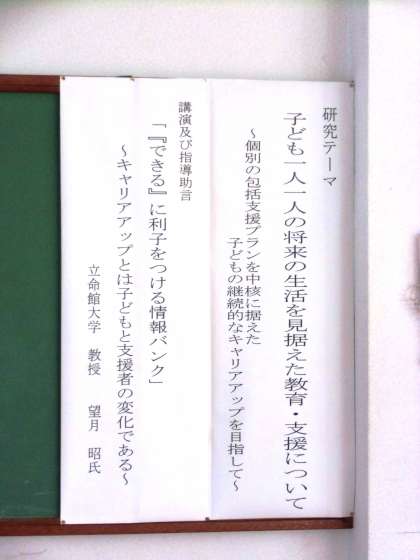 研究テーマ
子ども一人一人の将来の生活を見据えた教育・支援について
～個別の包括支援プランを中核に据えた
子どもの継続的なキャリアアップを目指して～
講演及び指導助言
「『できる』に利子をつける情報バンク」
～キャリアアップとは子どもと支援者の変化である～
立命館大学 教授 望月 昭氏